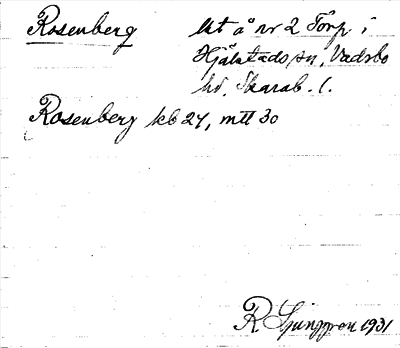 Rosenberg lht å nr 2 Törp i
Hjälstads sn, Vadsbo
hd, Skarab. l.
Rosenberg kb 27, mtt 30
R Ljunggren 1931